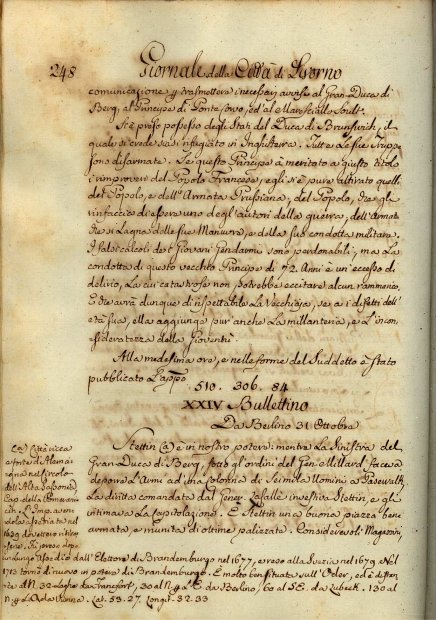 248 Giornale della Città di Livorno
comunicazione, e trasmetterà i necessarj avvisi al Gran-Duca di
Berg, al Principe di Ponte Corvo, ed al Maresciallo Soult.
Si è preso possesso degli Stati del Duca di Brunswich, il
quale si crede siasi infugiato in Inghilterra. Tutte le sue Truppe
sono disarmate. Se questo Principe à meritato a giusto titolo
i rimproveri del Popolo Francese, egli si è pure attirato quelli
del Popolo, e dell'Armata Prussiana; del Popolo, che gli
rinfaccia di essere uno degl'autori della guerra; dell'Armata
che si lagna delle sue Manuvre, e della sua condotta militare.
I falsi calcoli de' Giovani Gendarmi sono perdonabili; ma la
condotta di questo vecchio Principe di 72 Anni è un'eccesso di
delirio, la cui catastrofe non potrebbe eccitare alcun rammarico,
e che avrà dunque di rispettabile la Vecchiaja, se a i difetti dell'
età sua, ella aggiunge pur anche la millanteria, e l'incon-
sideratezza della Gioventù?
Alla medesima ora, e nelle forme del Suddetto è stato
pubblicato l'app.so
510. 306. 84
XXIV Bullettino
Da Berlino 31 Ottobre
Stettin (a) è in nostro potere: mentre la Sinistra del
Gran-Duca di Berg, sotto gl'ordini del Gen. Millard, faceva
deporre l'Armi ad una Colonna di Seimila Uomini a Pasewalk,
la diritta comandata dal Gener. Lasalle investiva Stettin, e gli
intimava la Capitolazione. È Stettin una buona piazza bene
armata, e munita di ottime palizzate. Considerevoli Magazzini,
(a) Città ricca
e forte di Alema-
gna nel Circolo
dell'Alta Sassonia
Cap. della Pomerania
L'Imp. aven-
dola
1630 dovettero ritirar-
sene. Fu presa dopo
lungo assedio dall'Elettore di Brandemburgo nel 1677, e resa alla Svezia nel 1679. Nel
1713 tornò di nuovo in potere di Brandemburgo. È molto ben situata sull'Oder, ed è disten-
te al N. 32 leghe da Francfort, 30 al N. p. E. da Berlino, 60 al S.E. da Lubeck, 130 al
N. p. da Vienna. Lat. 53. 27. Longit. 32. 33